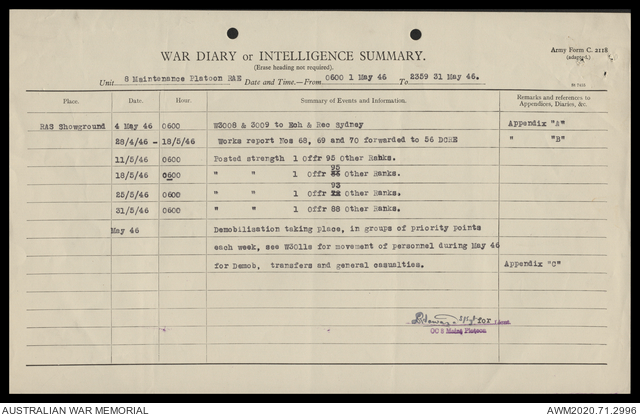 Army Form C. 2118
(adapted.)
WAR DIARY or INTELLIGENCE SUMMARY.
(Erase heading not required).
Unit 8 Maintenance Platoon RAE Date and Time.—From 0600 1 May 46 To 2359 31 May 46.
Place. Date. Hour. Summary of Events and Information. Remarks and references to Appendices, Diaries, &c.
RAS Showground 4 May 46 0600 W3008 & 3009 to Ech & Rec Sydney Appendix "A"
28/4/46 - 18/5/46 Works report Nos 68, 69 and 70 forwarded to 56 DCRE " "B"
11/5/46 0600 Posted strength 1 Offr 95 Other Ranks.
18/5/46 0600 " " 1 Offr 95 Other Ranks.
25/5/46 0600 " " 1 Offr 93 Other Ranks.
31/5/46 0600 " " 1 Offr 88 Other Ranks.
May 46 Demobilisation taking place, in groups of priority points
each week, see W3011s for movement of personnel during May 46
for Demob, transfers and general casualties. Appendix "C"
for
OC 8 Maint Platoon
AUSTRALIAN WAR MEMORIAL AWM2020.71.2996